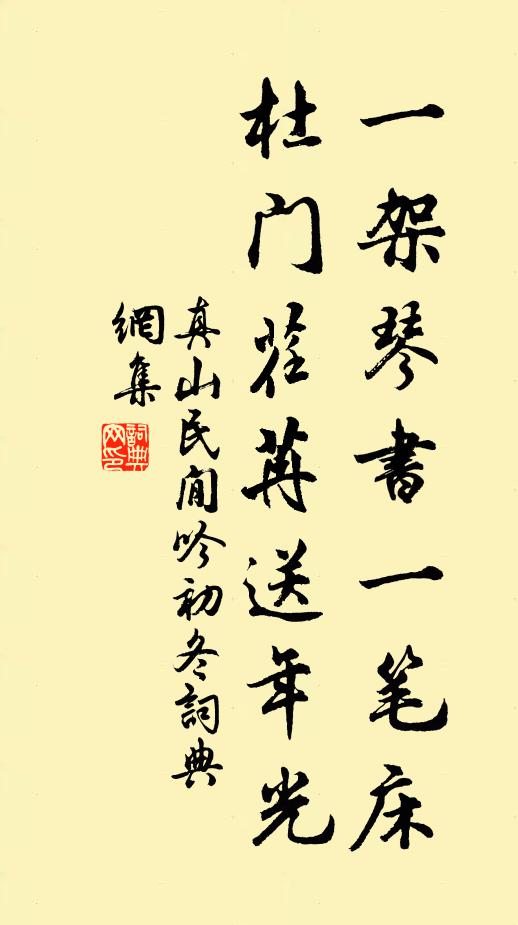 一架琴書一笔床
杜门荏苒送年光
真山民閒吟初冬詞典
網集
詞典
网印